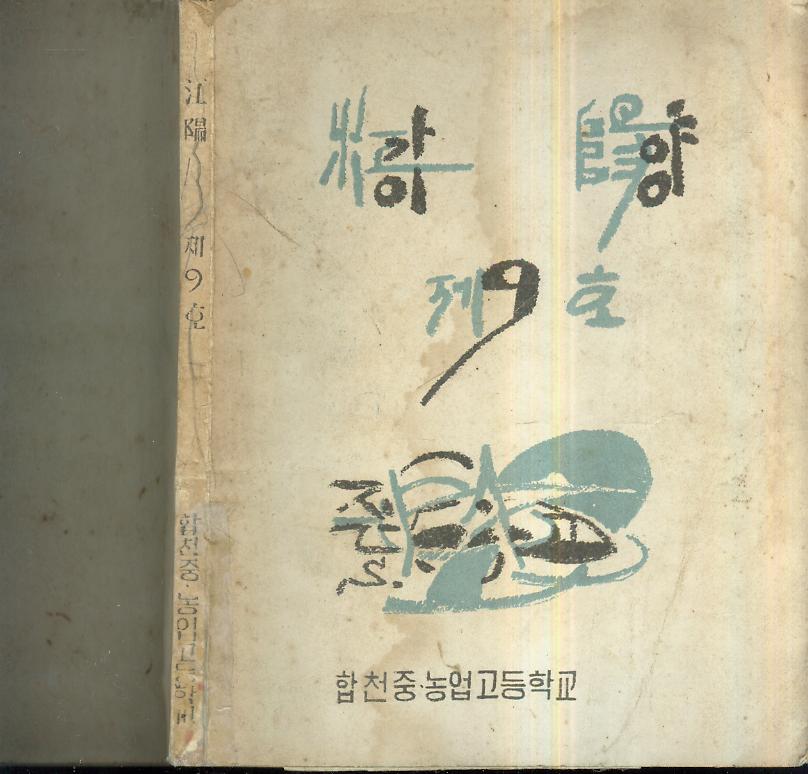 江陽 제9호 합천중·농업고등학교
강 양
제9호
합천중·농업고등학교